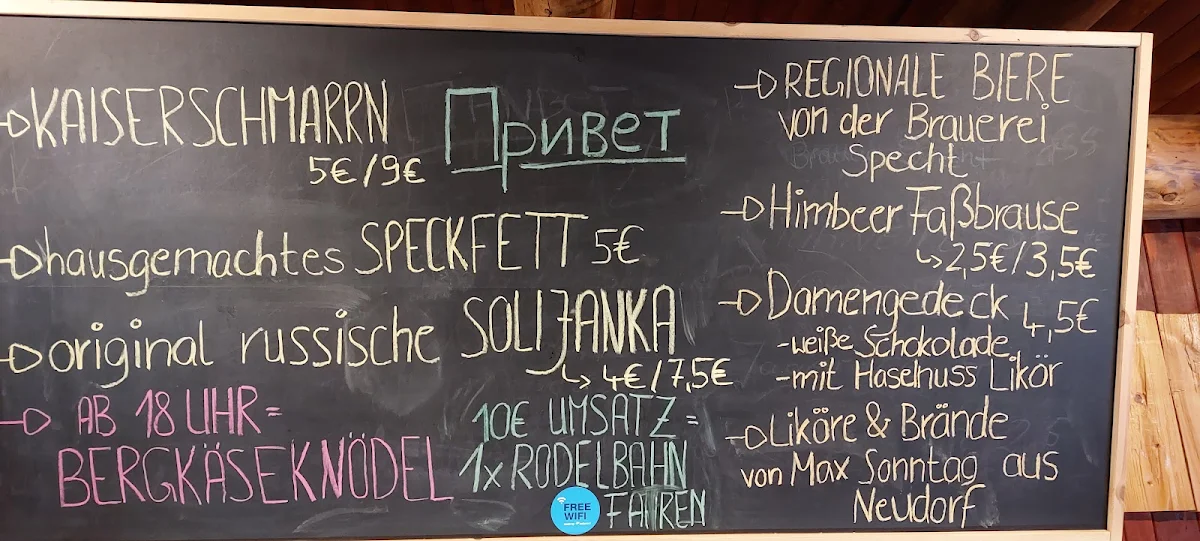 KAISERSCHMARRN
5€/9€
Привет
hausgemachtes SPECKFETT 5€
original russische SOLIJANKA
4€/7,5€
AB 18 UHR=
BERGKÄSEKNÖDEL
10€ UMSATZ=
1x RODELBAHN
FAHREN
FREE
WIFI
REGIONALE BIERE
von der Brauerei
Specht
Himbeer Faßbrause
2,5€/3,5€
Damengedeck 4,5€
-weiße Schokolade
-mit Haselnuss Likör
Liköre & Brände
von Max Sonntag aus
Neudorf